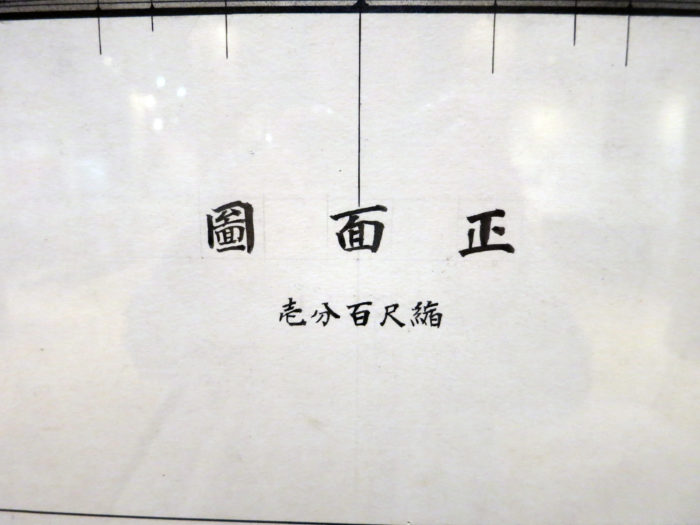 正面圖
縮尺百分壱